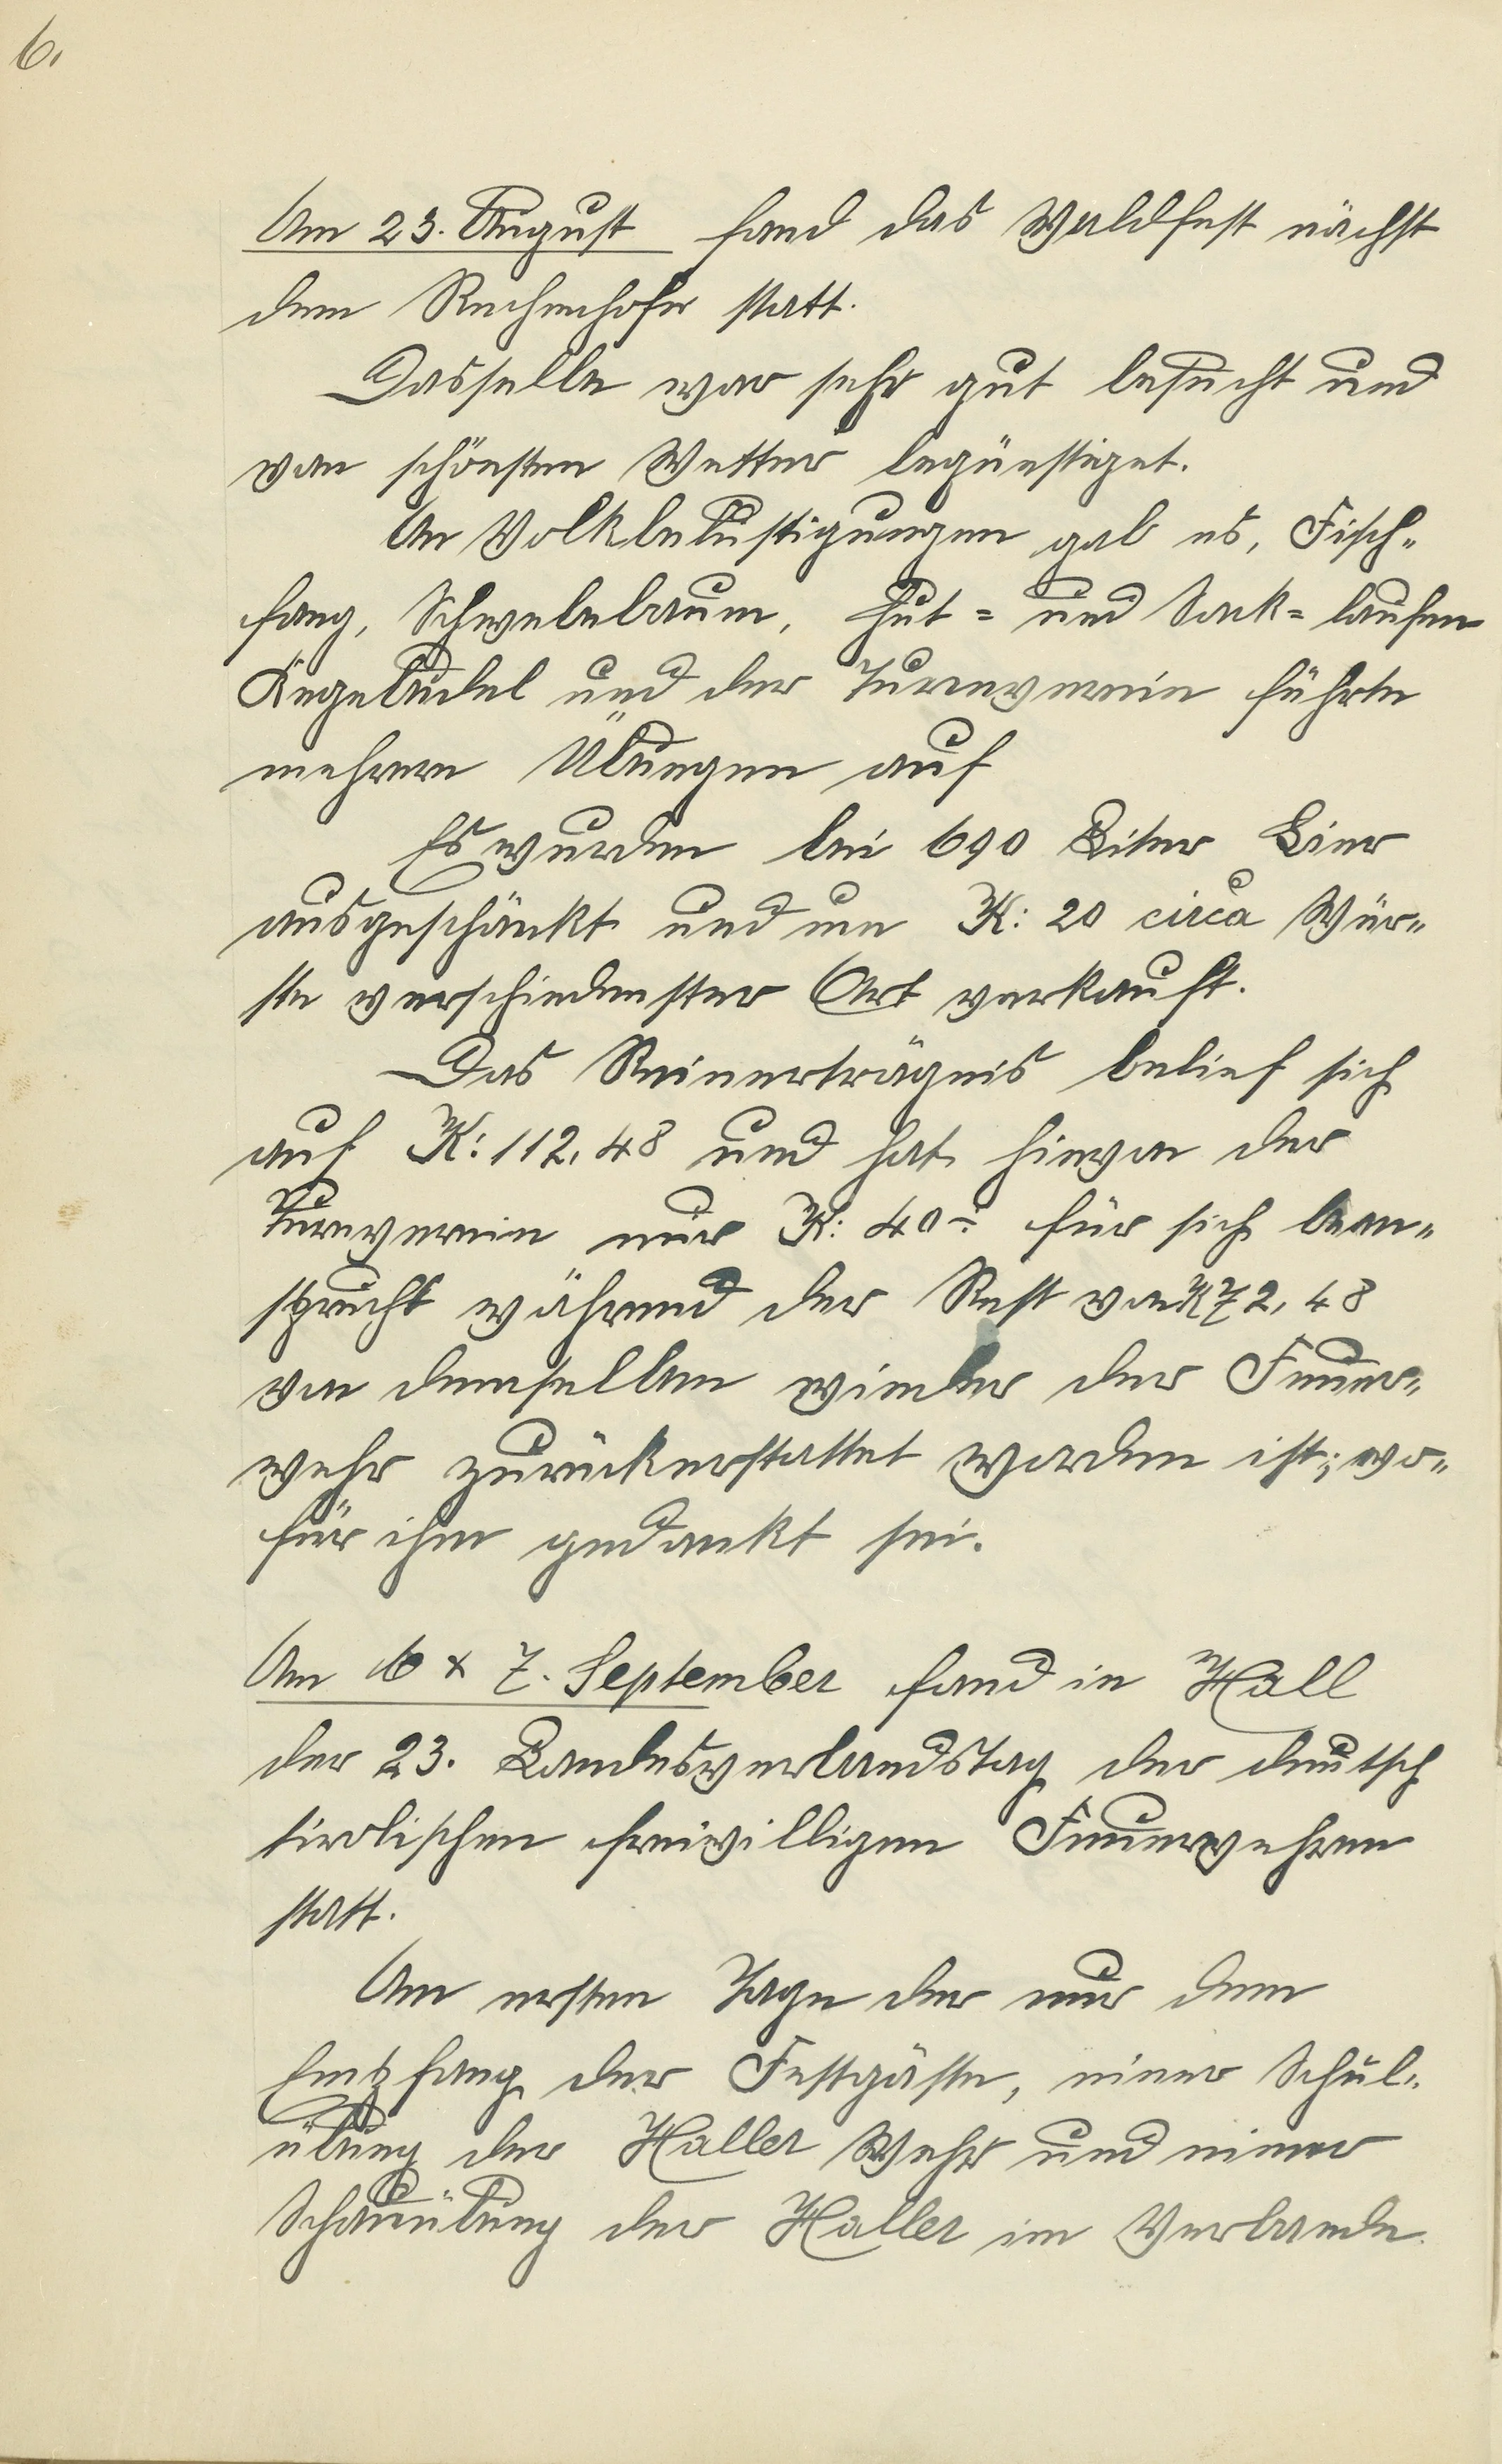 6.
Am 23. August fand das Waldfest nächst
dem Rechenhofer statt.
Dasselbe war sehr gut besucht und
von schönsten Wetter begünstiget.
An Volkbelustigungen gab es, Fisch-
fang, Schwebebaum, Hut- und Sack-laufen
Kegelbudel und der Turnverein führte
mehrere Übungen auf
Es wurden bei 690 Liter Bier
ausgeschänkt und um K: 20 circa Wür-
ste verschiedenster Art verkauft.
Das Reinerträgnis belief sich
auf K: 112,48 und hat hievon der
Turnverein nur K: 40.- für sich bean-
sprucht während der Rest von K 72,48
von demselben wieder der Feuer-
wehr zurückerstattet worden ist; wo-
für ihm gedankt sei.
Am 6 & 7. September fand in Hall
der 23. Landesverbandstag der deutsch
tirolischen freiwilligen Feuerwehren
statt.
Am ersten Tage der nur dem
Empfang der Festgäste, einer Schul-
übung der Haller Wehr und einer
Schauübung der Haller im Verbande